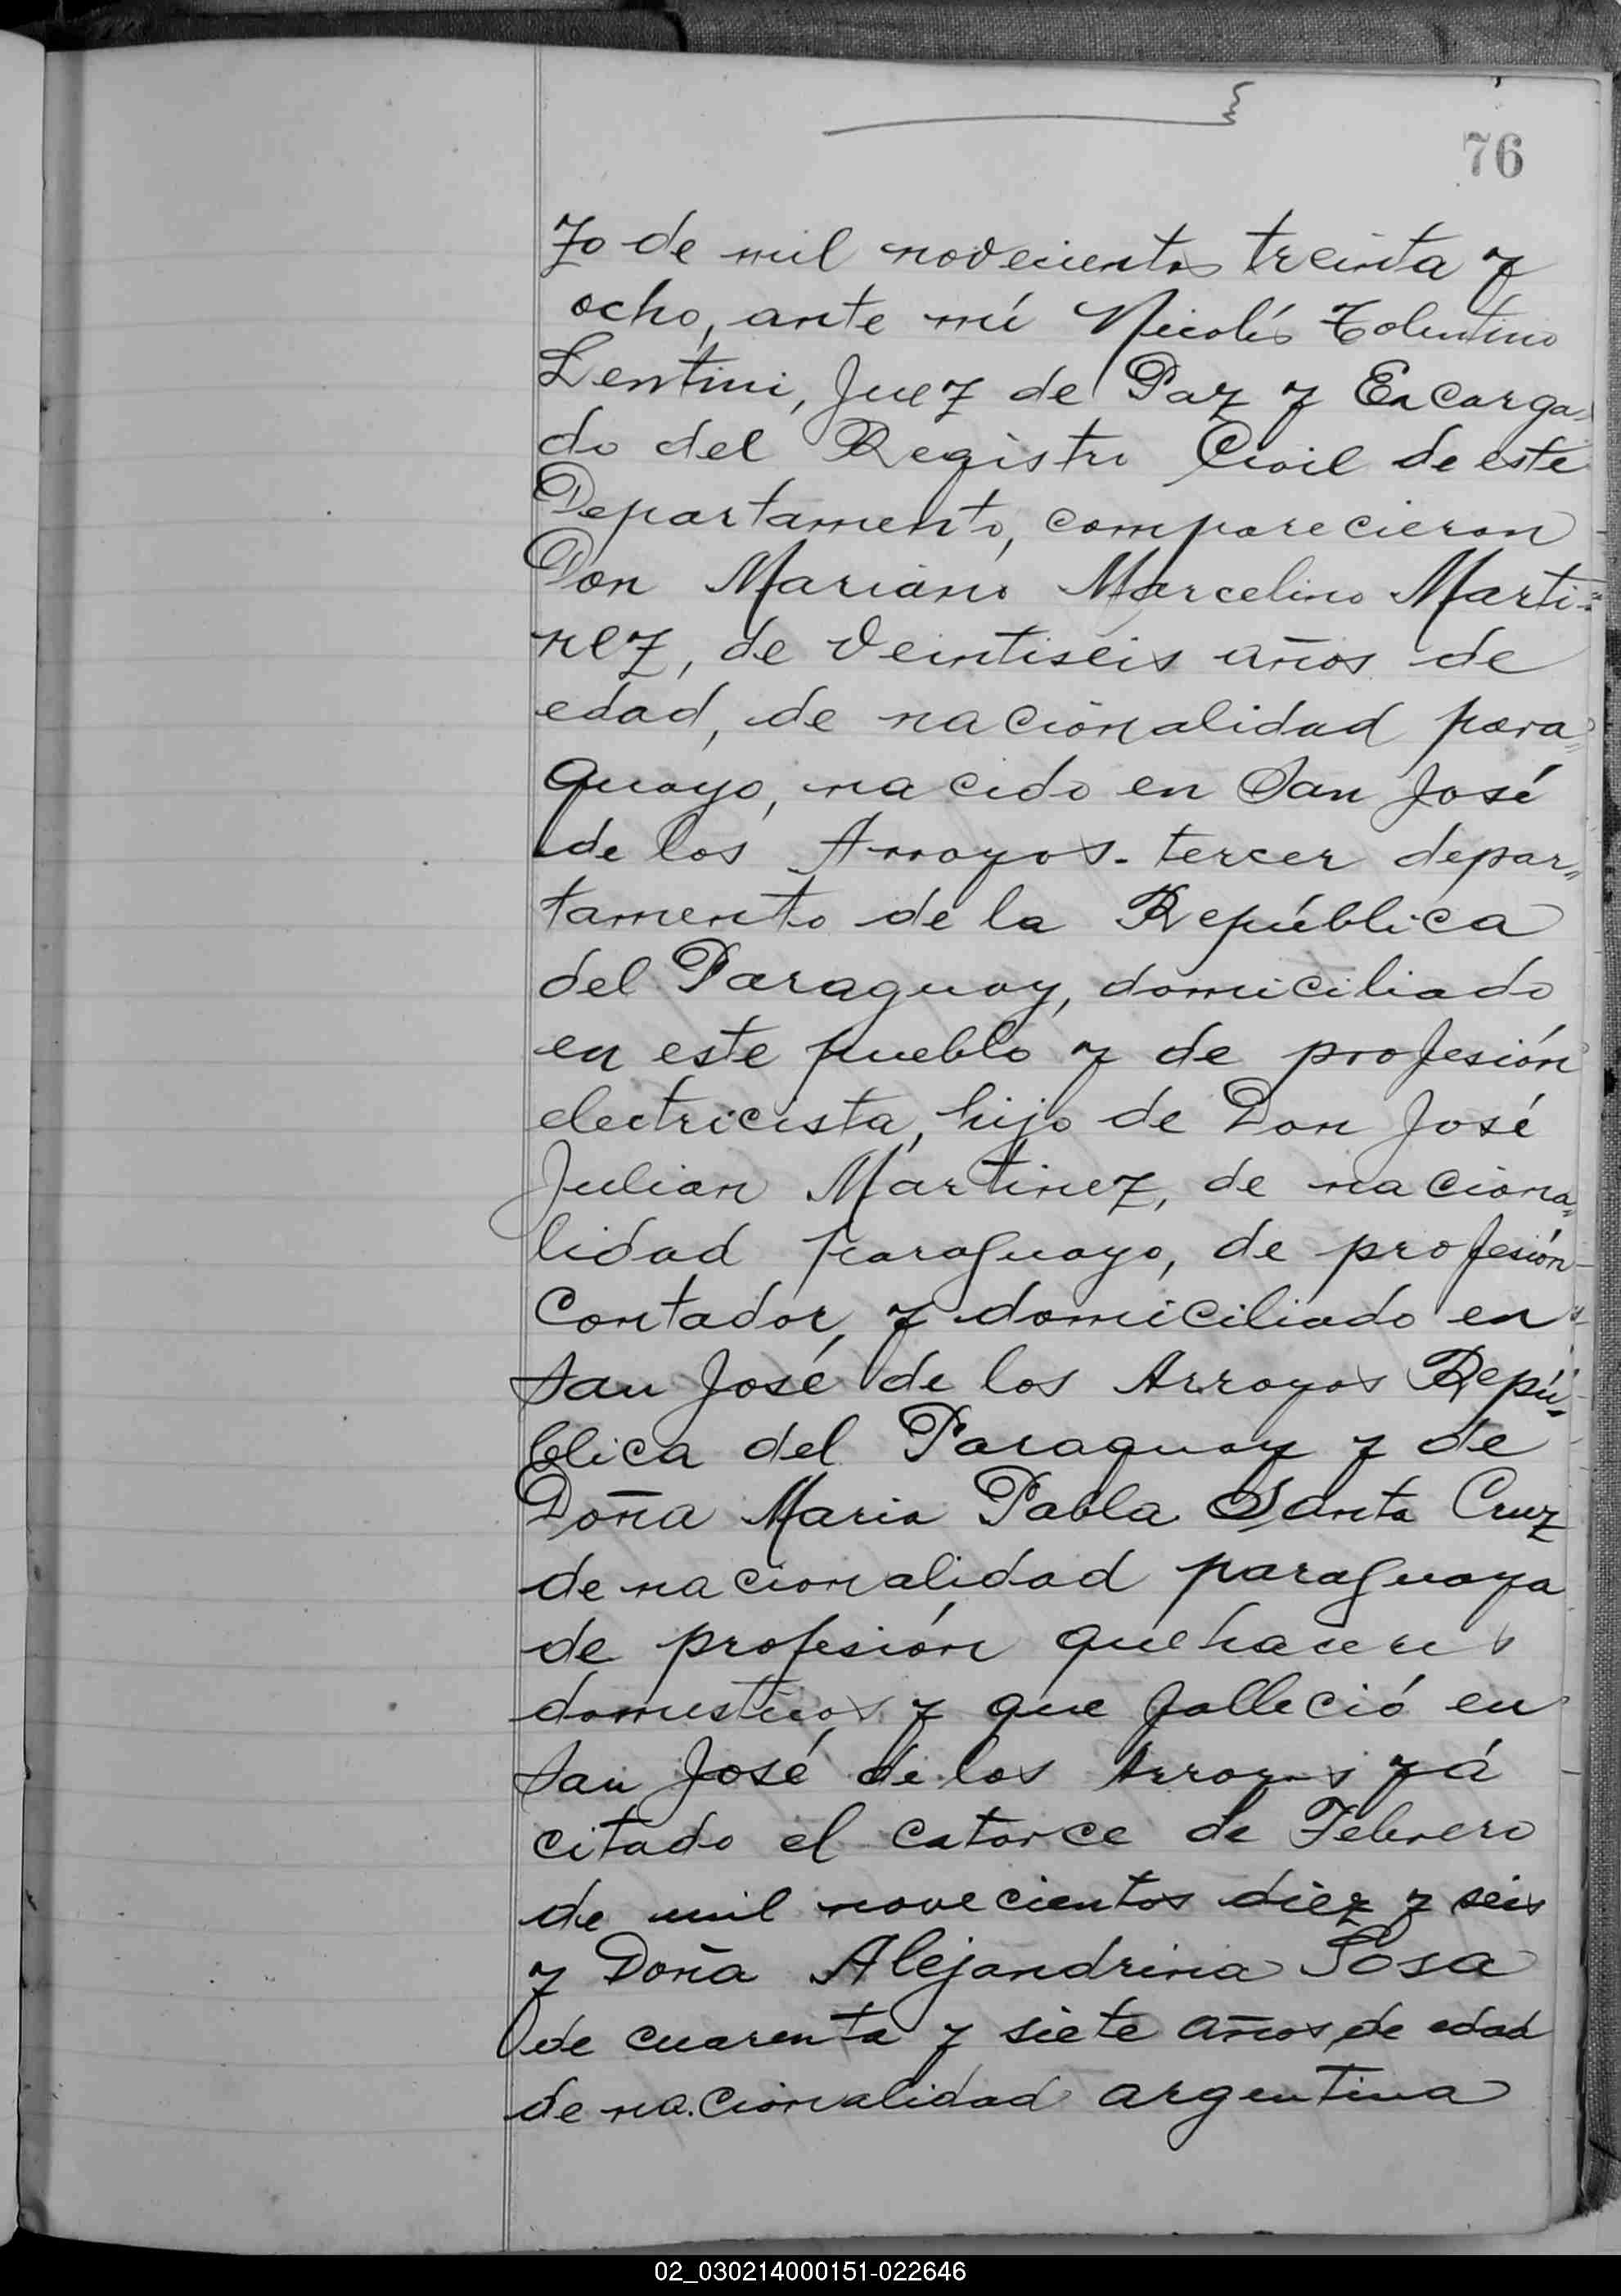 76
zo de mil novecientos treinta y
ocho, ante mí Nicolás Tolentino
Lentini, Juez de Paz y Encarga„
do del Registro Civil de este
Departamento, comparecieron
Don Mariano Marcelino Marti„
nez, de veintiseis años de
edad, de nacionalidad para„
guayo, nacido en San José
de los Arroyos - tercer depar„
tamento de la República
del Paraguay, domiciliado
en este pueblo y de profesión
electricista, hijo de Don José
Julian Martinez, de naciona„
lidad paraguayo, de profesión
Contador, y domiciliado en
San José de los Arroyos Repú„
blica del Paraguay y de
Doña Maria Pabla Santa Cruz
de nacionalidad paraguaya
de profesión quehaceres
domesticos y que falleció en
San José de los Arroyos yá
citado el catorce de Febrero
de mil novecientos diez y seis
y Doña Alejandrina Sosa
de cuarenta y siete años de edad
de nacionalidad argentina
02_030214000151-022646